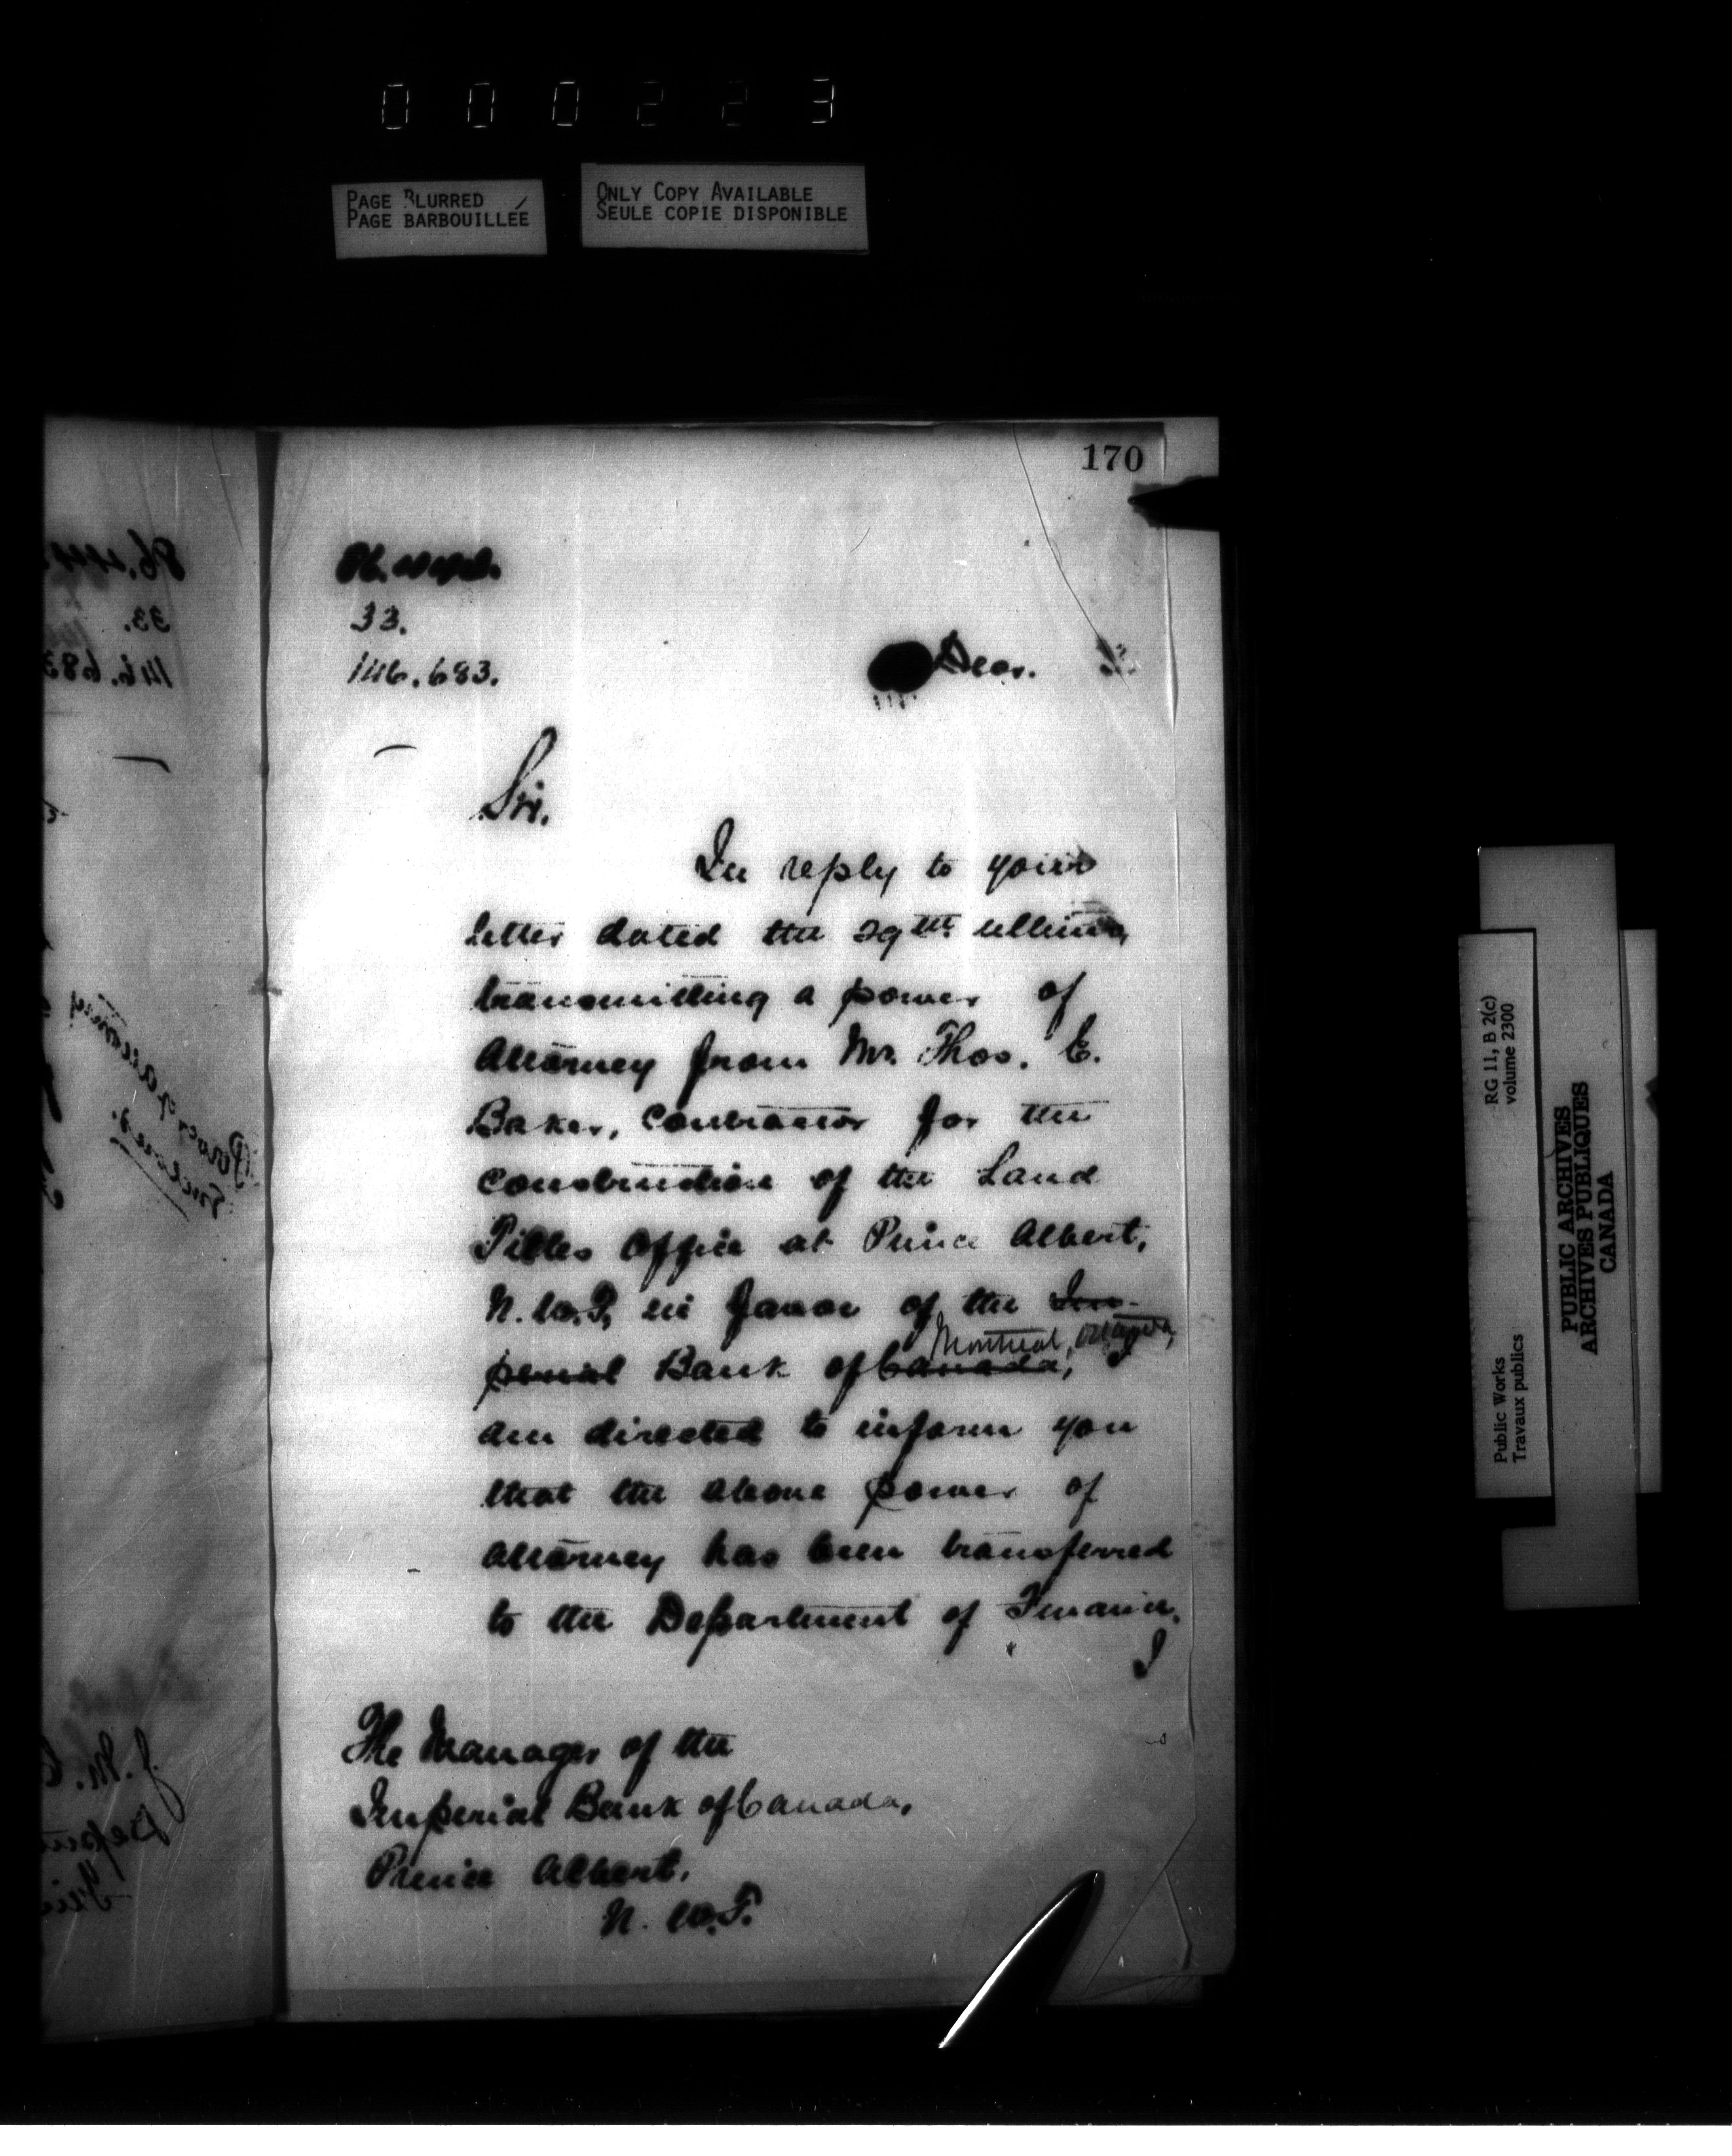 000223
PAGE BLURRED
PAGE BARBOUILLÉE
ONLY COPY AVAILABLE
SEULE COPIE DISPONIBLE
170
33.
146.683.
Dec.
Sir.
In reply to your
letter dated the 29th ultimo,
transmitting a power of
Attorney from Mr. Thos. E.
Baker, Contractor for the
construction of the Land
Titles Office at Prince Albert,
N.W.T, in favor of the Im-
perial Bank of Canada, Montreal, Ottawa, I
am directed to inform you
that the above power of
attorney has been transferred
to the Department of Finance.
I
The Manager of the
Imperial Bank of Canada,
Prince Albert.
N. W.T.
RG 11, B 2(c)
volume 2300
Public Works
Travaux publics
PUBLIC ARCHIVES
ARCHIVES PUBLIQUES
CANADA